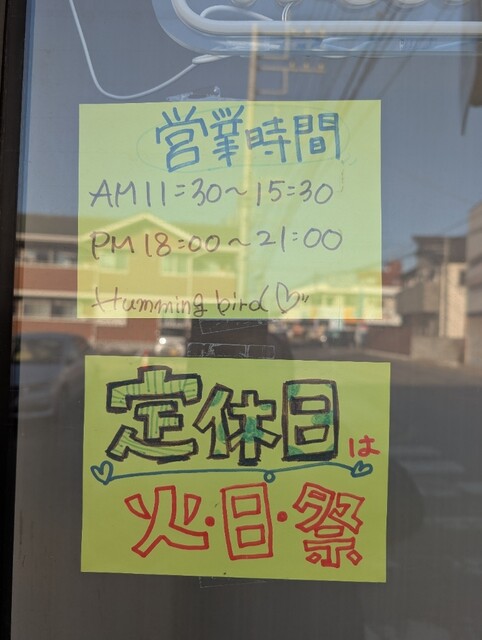 営業時間
AM 11:30〜15:30
PM 18:00〜21:00
Hummning bird♡
定休日は
火・日・祭